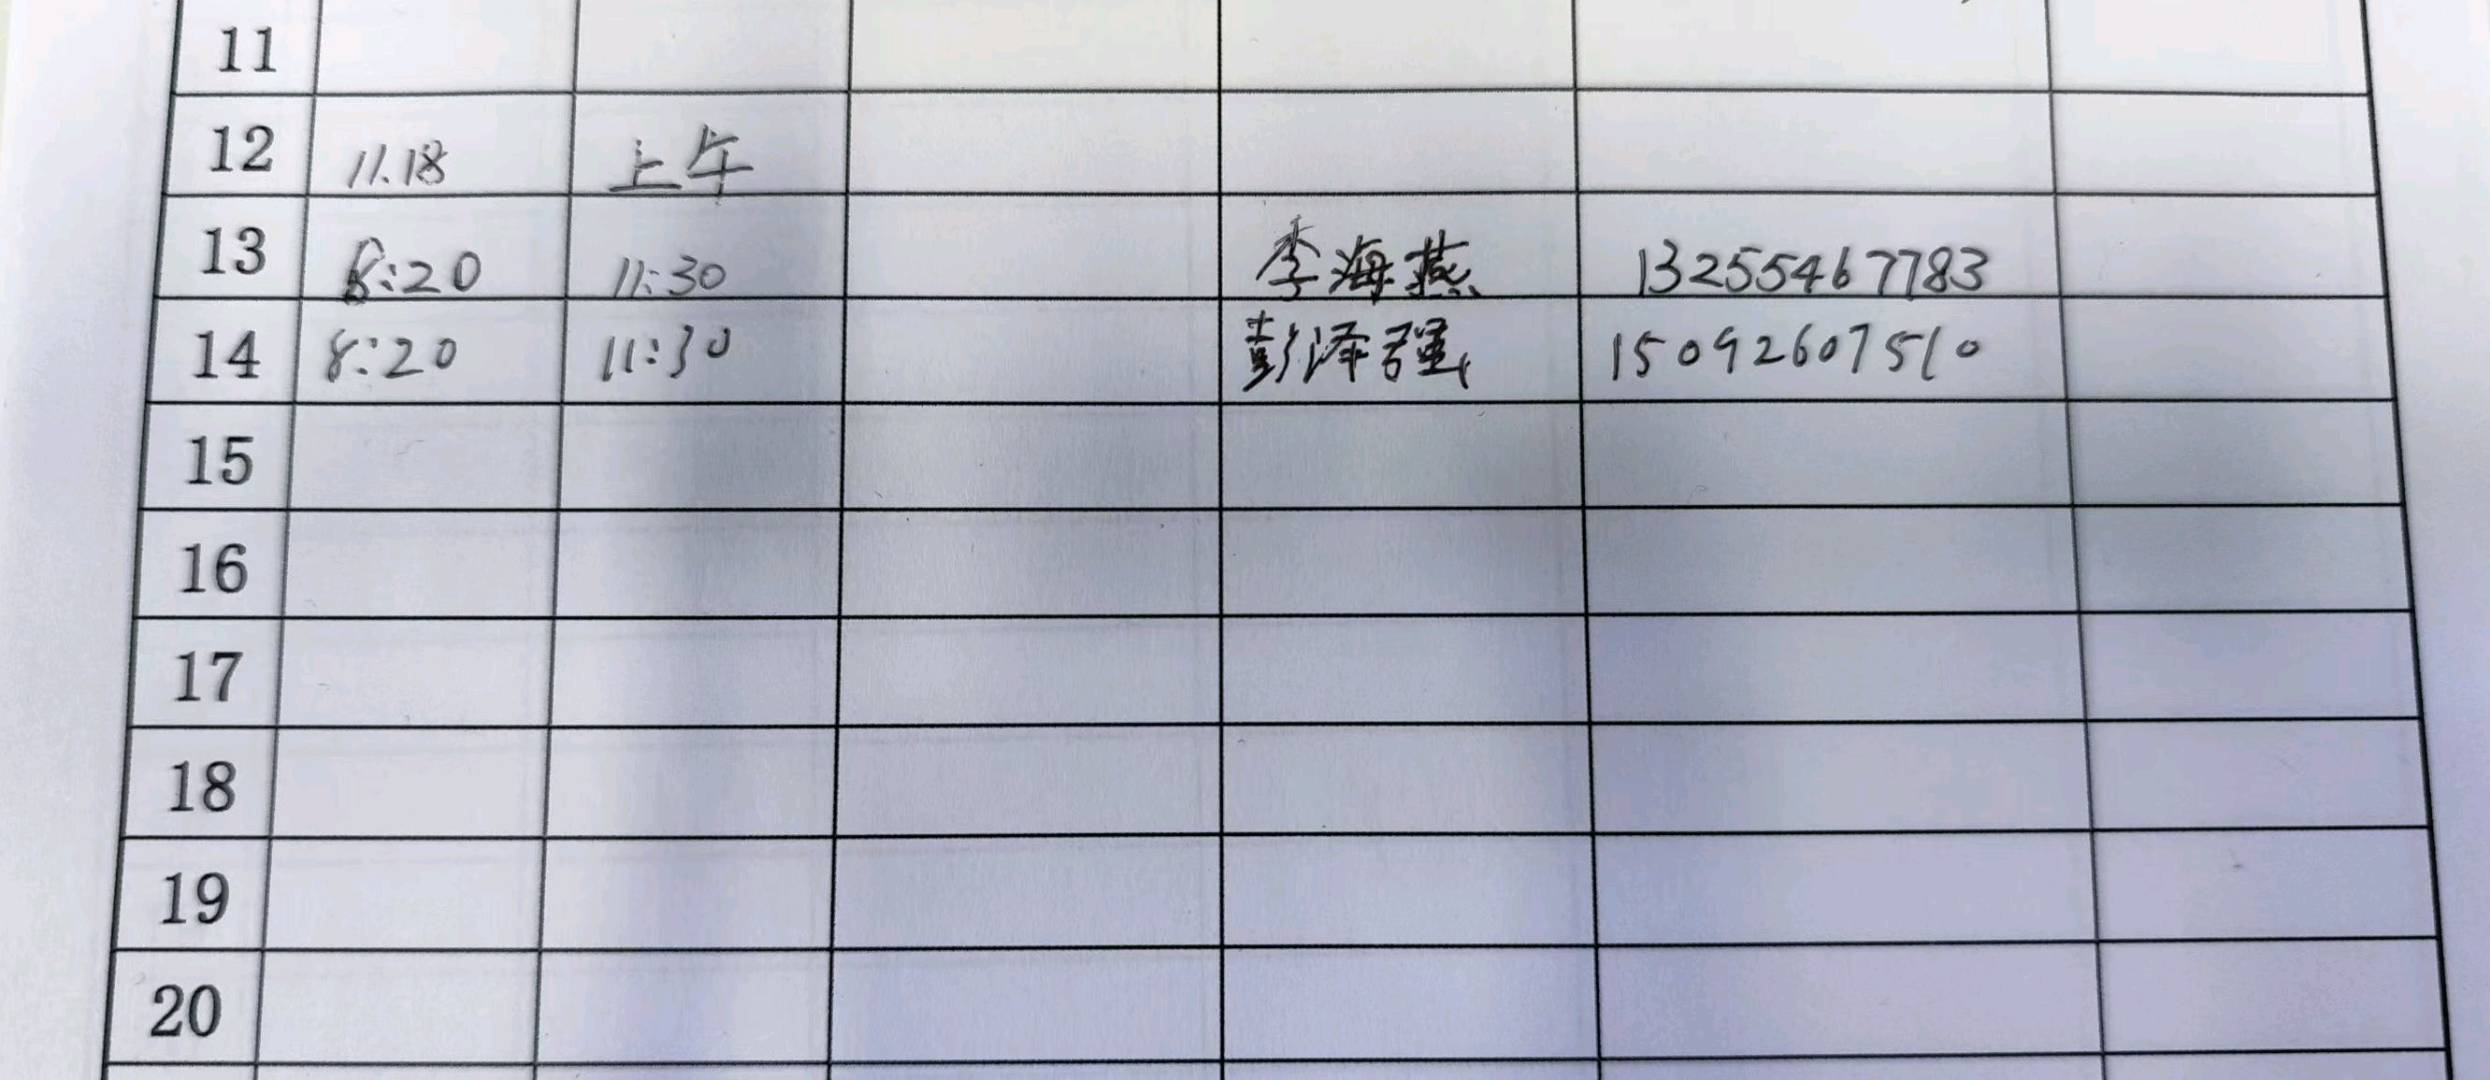 11
12 11.18 上午
13 8:20 11:30 李海燕 13255467783
14 8:20 11:30 彭泽强 15092607510
15
16
17
18
19
20